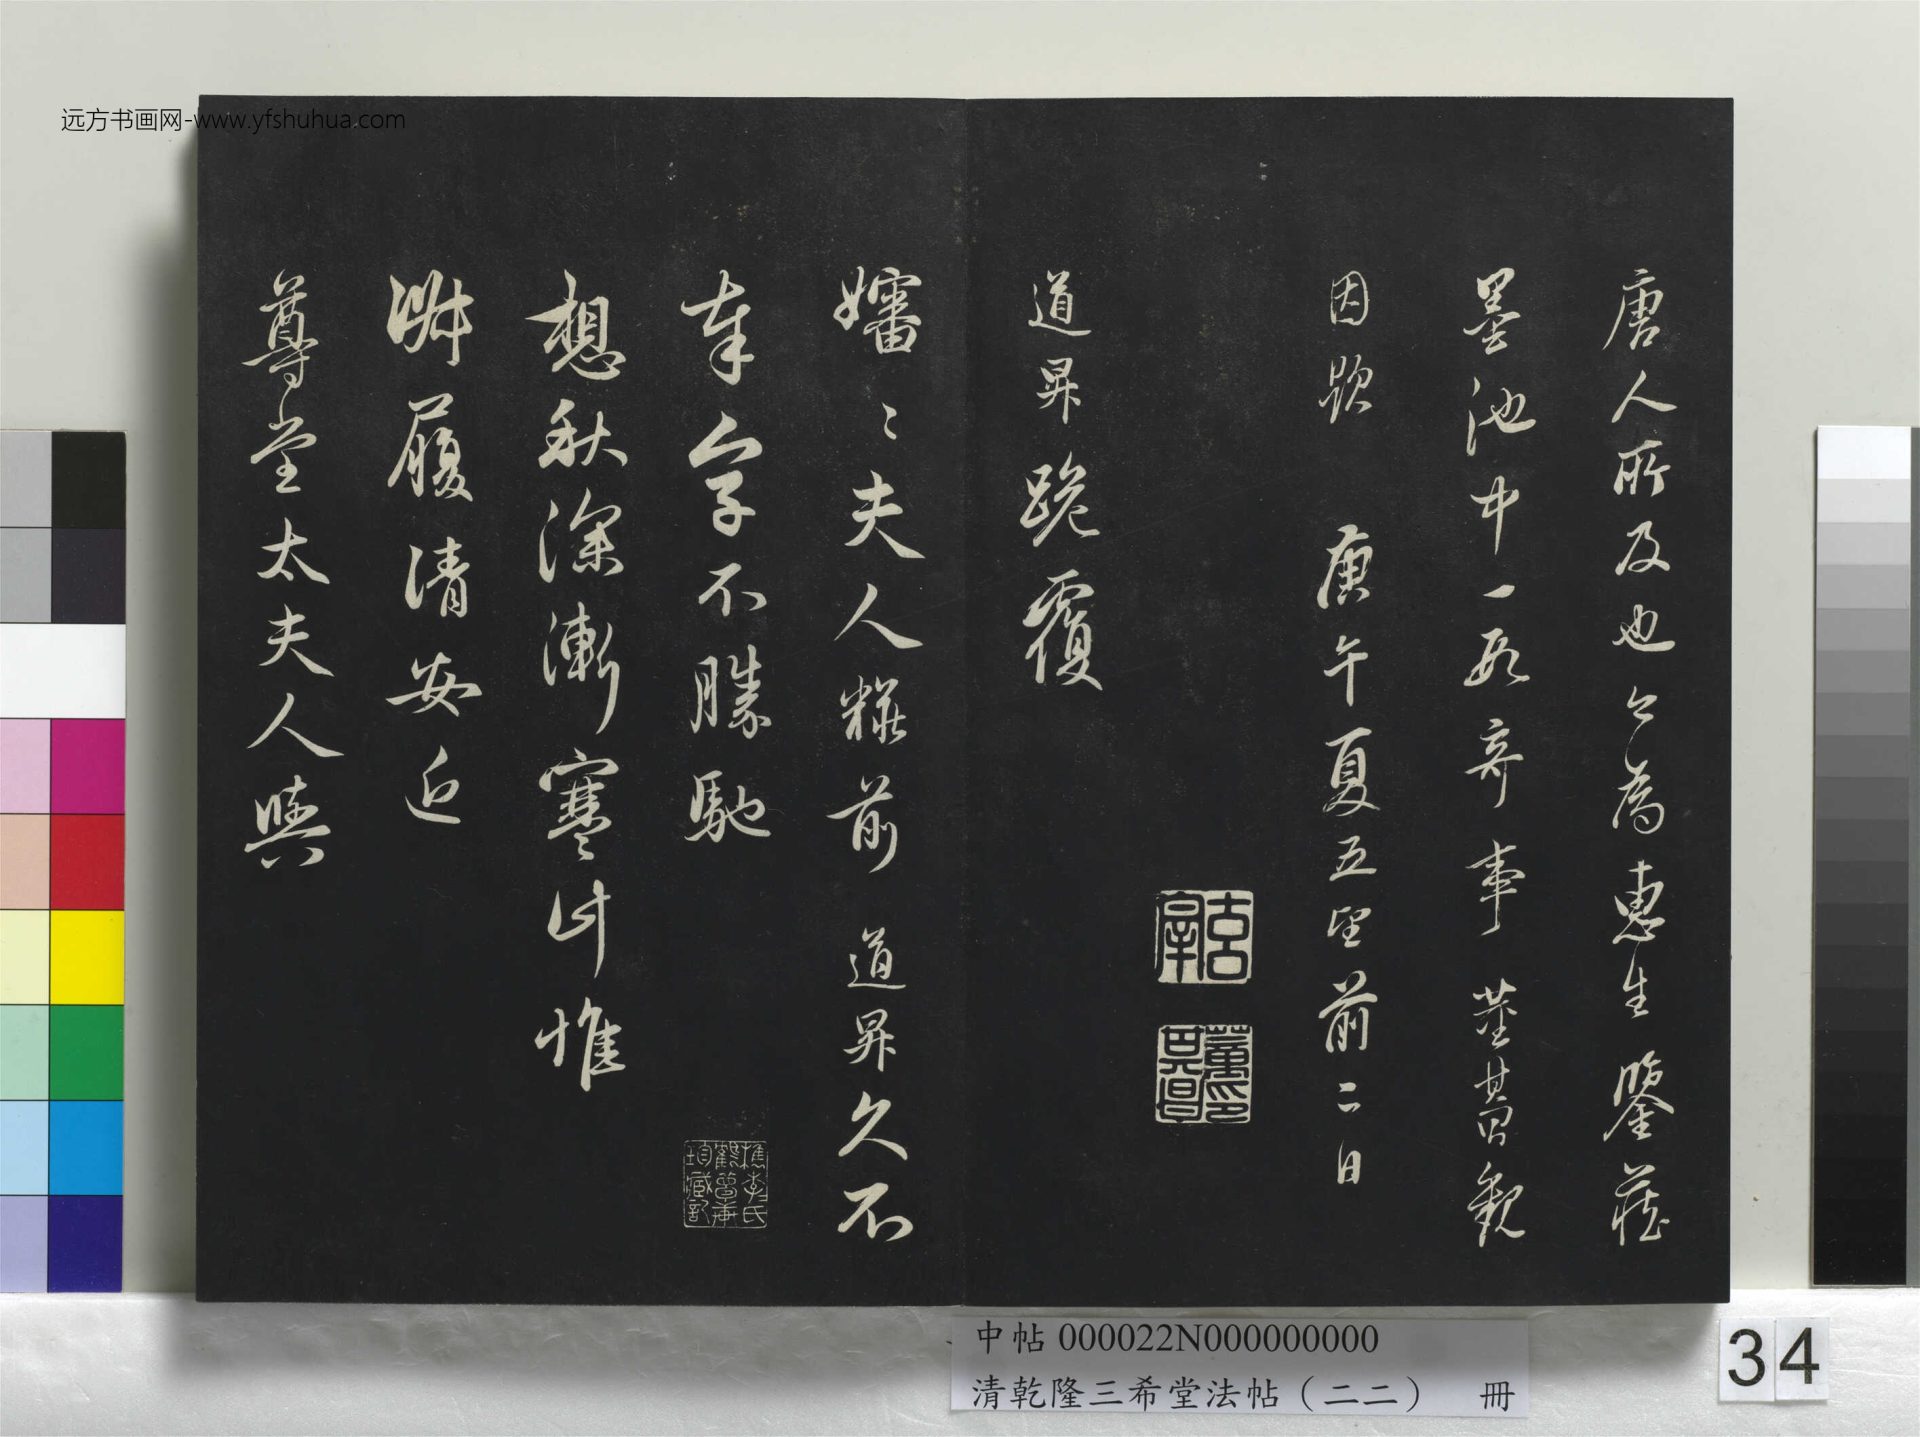 远方书画网-www.yfshuhua.com
唐人所及也今為惠生鑒藏
墨池中一段奇事董其昌觀
因題 庚午夏五望前二日
道昇跪覆
嬸〻夫人糚前 道昇久不
奉字不勝馳
想秋深漸寒計惟
淑履清安近
尊堂太夫人與
中帖 000022N000000000
清乾隆三希堂法帖（二二） 冊
34